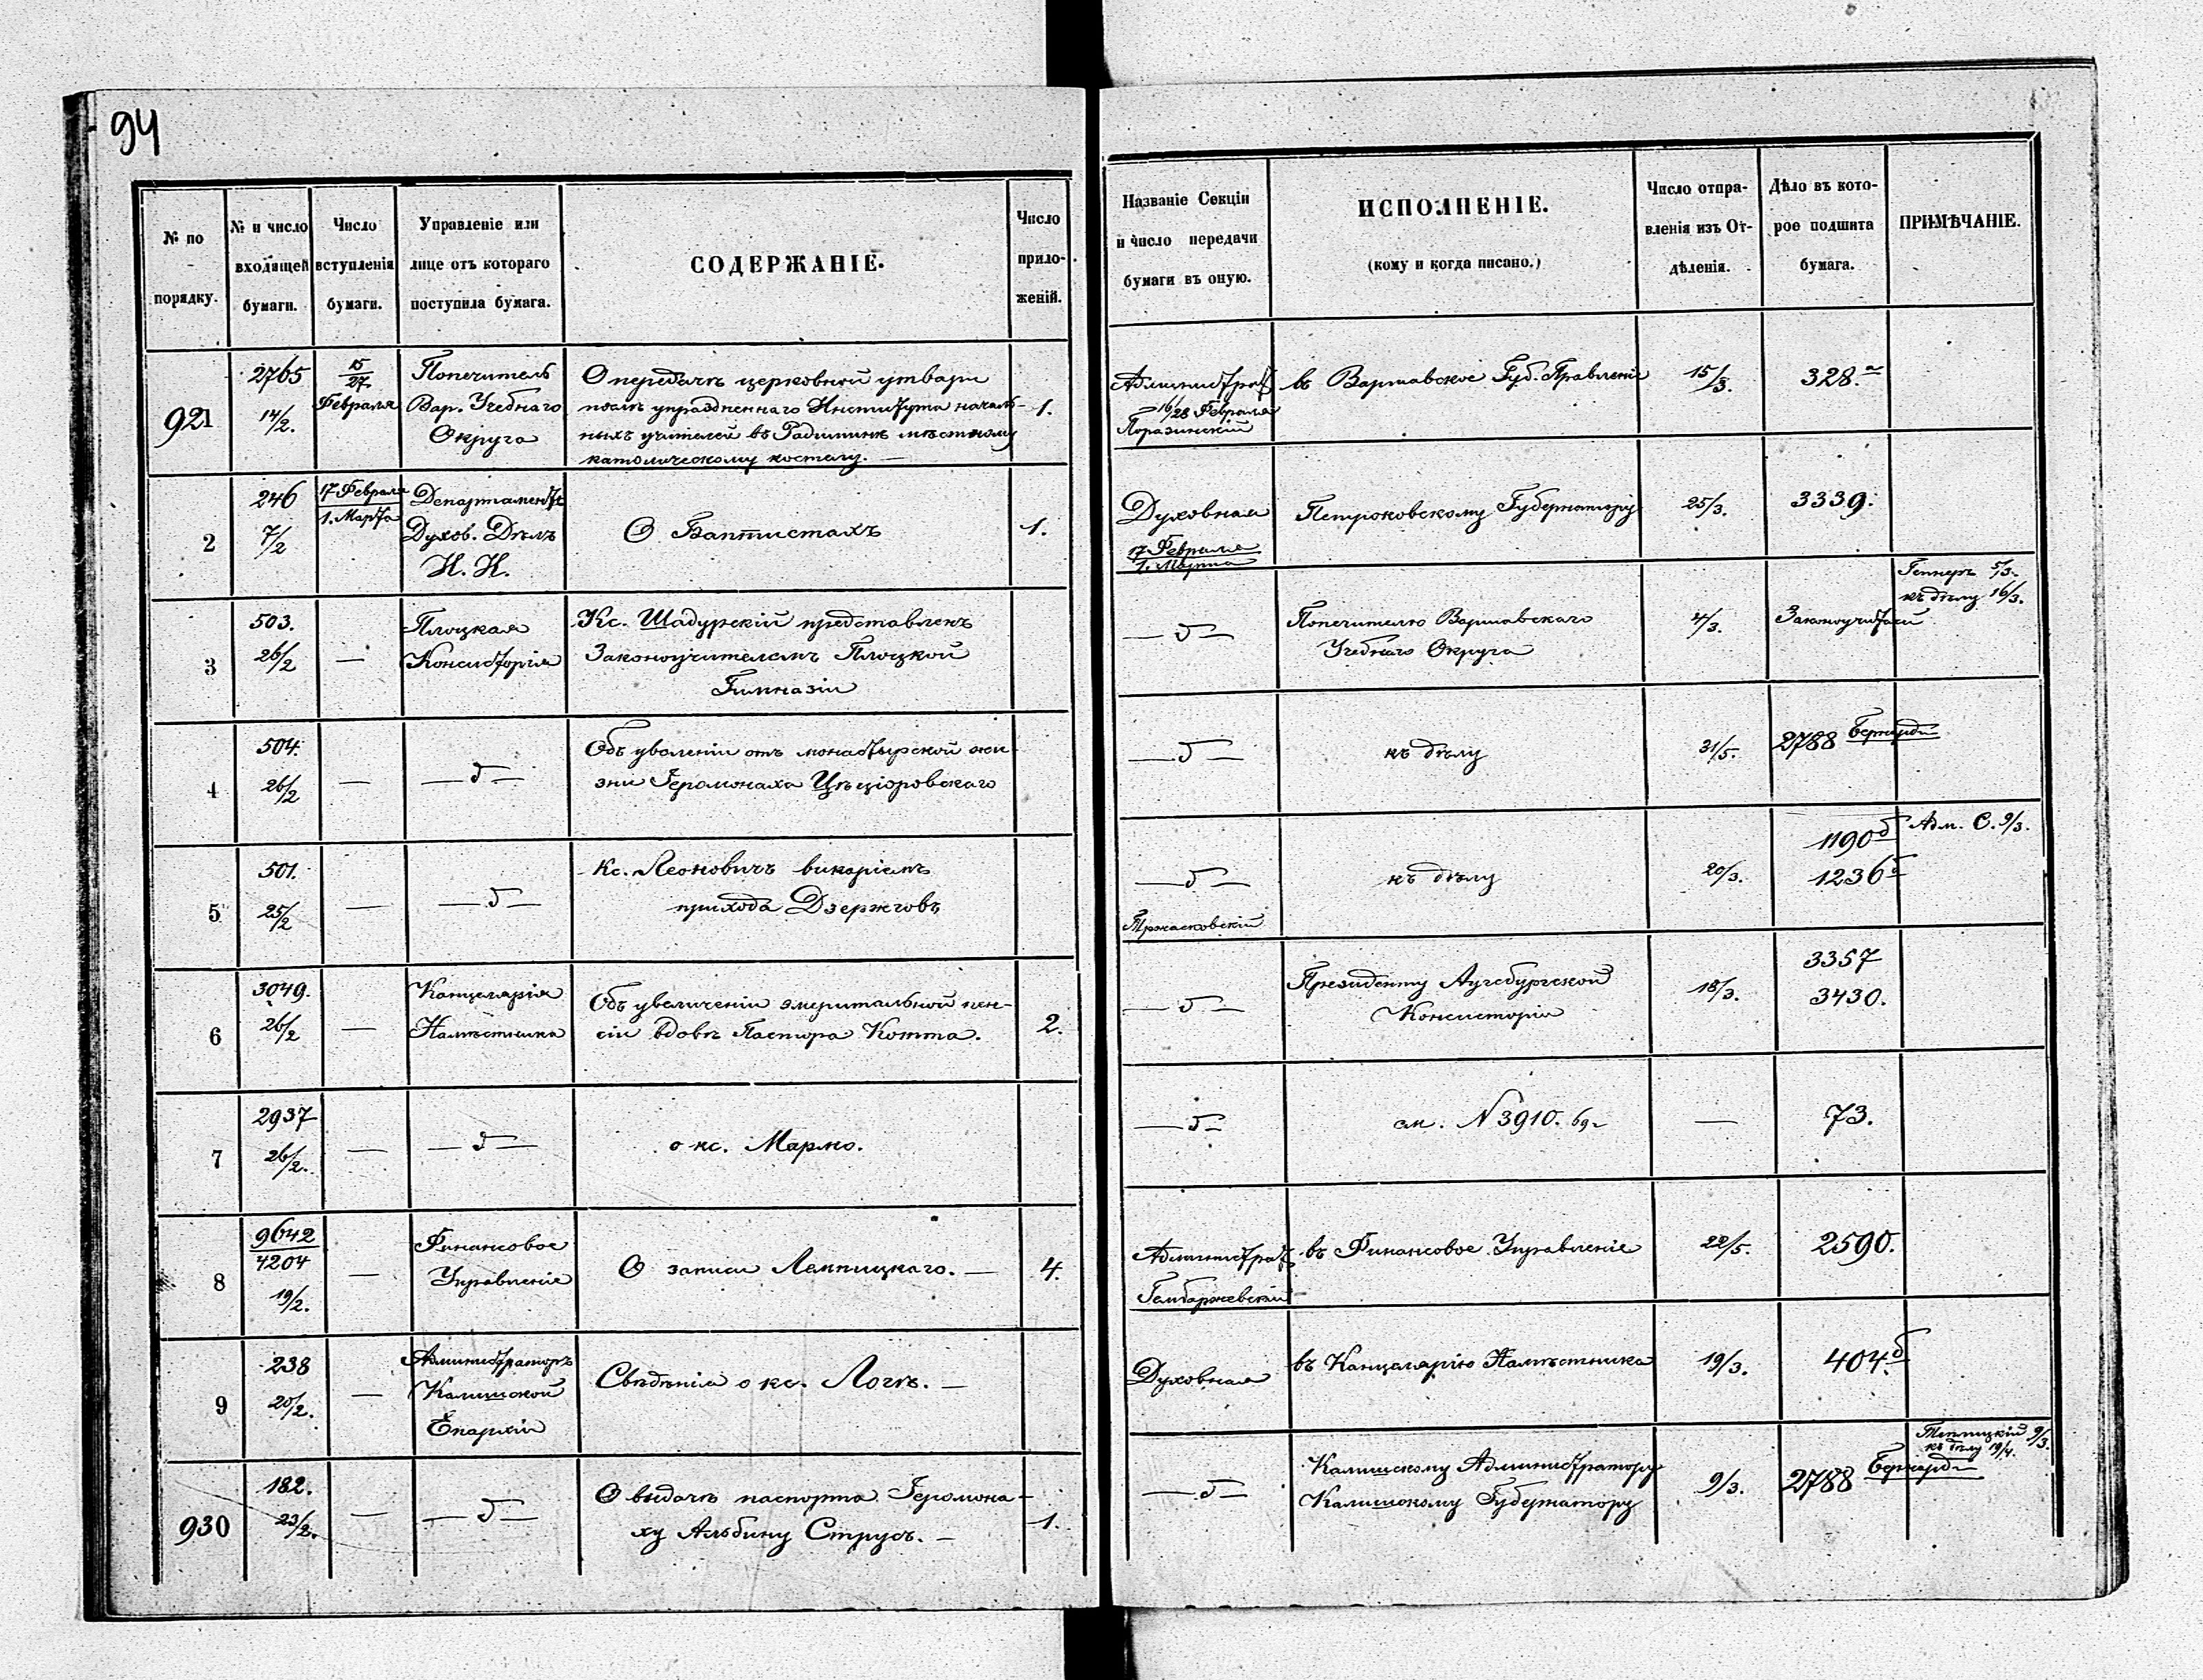 94
№ по порядку.
№ и число входящей бумаги.
Число вступленія бумаги.
Управленіе или лице отъ котораго поступила бумага.
СОДЕРЖАНІЕ.
Число приложеній.
Названіе Секціи и число передачи бумаги въ оную.
ИСПОЛНЕНІЕ.
(кому и когда писано.)
Число отпра-
вленія изъ От-
дѣленія.
Дѣло въ кото-
рое подшита
бумага.
ПРИМѢЧАНІЕ.
921
2765
14/2.
15/27 Февраля
Попечитель
Вар. Учебнаго
Округа
О передачѣ церковной утвари
послѣ упраздненнаго Института началь-
ныхъ учителей въ Радиминѣ мѣстному
католическому костелу. —
1.
Администрат
16/28 Февраля
въ Варшавское Губ. Правленіе
15/3.
328.а
2
246
7/2
17 Февраля
1. Марта
Департаментъ
Духов. Дѣлъ
И. И.
О Баптистахъ
1.
Духовная
17 Февраля
1. Марта
Петроковскому Губернатору
25/3.
3339.
3
503.
26/2
—
Плоцкая
Консисторія
Кс. Шадурскій представленъ
Законоучителемъ Плоцкой
Гимназіи
— д —
Попечителю Варшавскаго
Учебнаго Округа
4/3.
Законоучители
5/3.
къ дѣлу 16/3.
4
504.
26/2
—
— д —
Объ уволеніи отъ монастырской жи-
зни Іеромонаха Цѣціоровскаго
— д —
къ дѣлу
31/5.
2788 Бернарди
5
501.
25/2
—
— д —
Кс. Леоновичъ викаріемъ
прихода Дзержговъ
— д —
къ дѣлу
20/3.
1190 б
1236 б
Адм. С. 9/3.
6
3049.
26/2
—
Канцелярія
Намѣстника
Объ увеличеніи эмеритальной пен-
сіи вдовѣ Пастора Котта.
2.
— д —
Президенту Аугсбургской
Консисторіи
18/3.
3357
3430.
7
2937
26/2.
—
— д —
о кс. Марко.
— д —
см. N 3910. 69 г
—
73.
8
9642
4204
19/2.
—
Финансовое
Управленіе
О записи Лемпицкаго. —
4.
Администрат
въ Финансовое Управленіе
22/5.
2590.
9
238
20/2.
—
Администраторъ
Калишской
Епархіи
Свѣдѣнія о кс. Логъ. —
Духовная
въ Канцелярію Намѣстника
19/3.
404 б
930
182.
23/2.
—
— д —
О выдачѣ паспорта Іеромона-
ху Альбину Струсъ. —
1.
— д —
Калишскому Администратору
Калишскому Губернатору
9/3.
2788 Бернарди
9/3.
къ дѣлу 19/4.